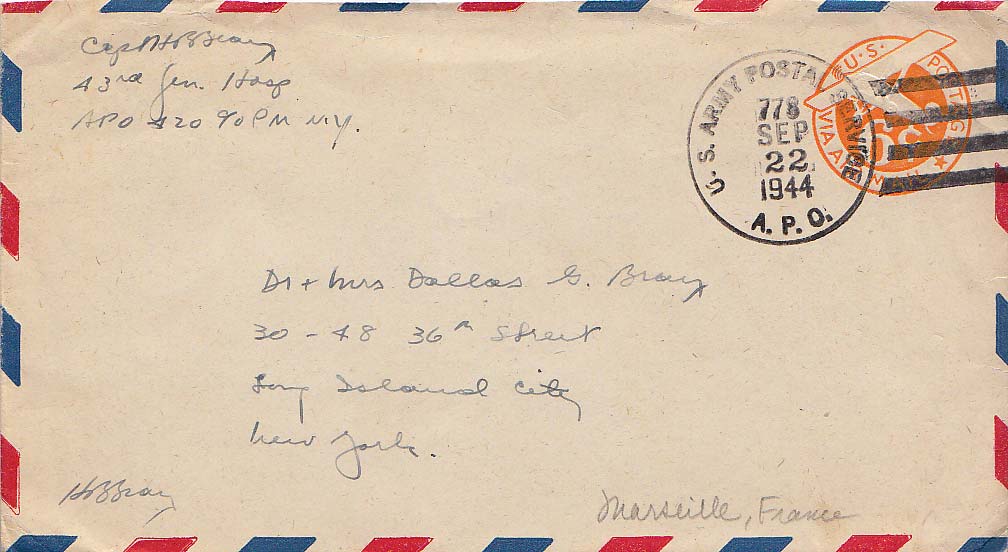 Capt H B Bray
43rd Gen. Hosp
APO #20 % PM N.Y.
U.S. ARMY POSTAL SERVICE
778
SEP
22
1944
A.P.O.
U.S. POSTAGE
VIA AIR MAIL
6c
Dr + Mrs Dallas G. Bray
30-48 36th Street
Long Island City
New York.
HBBray
Marseille, France